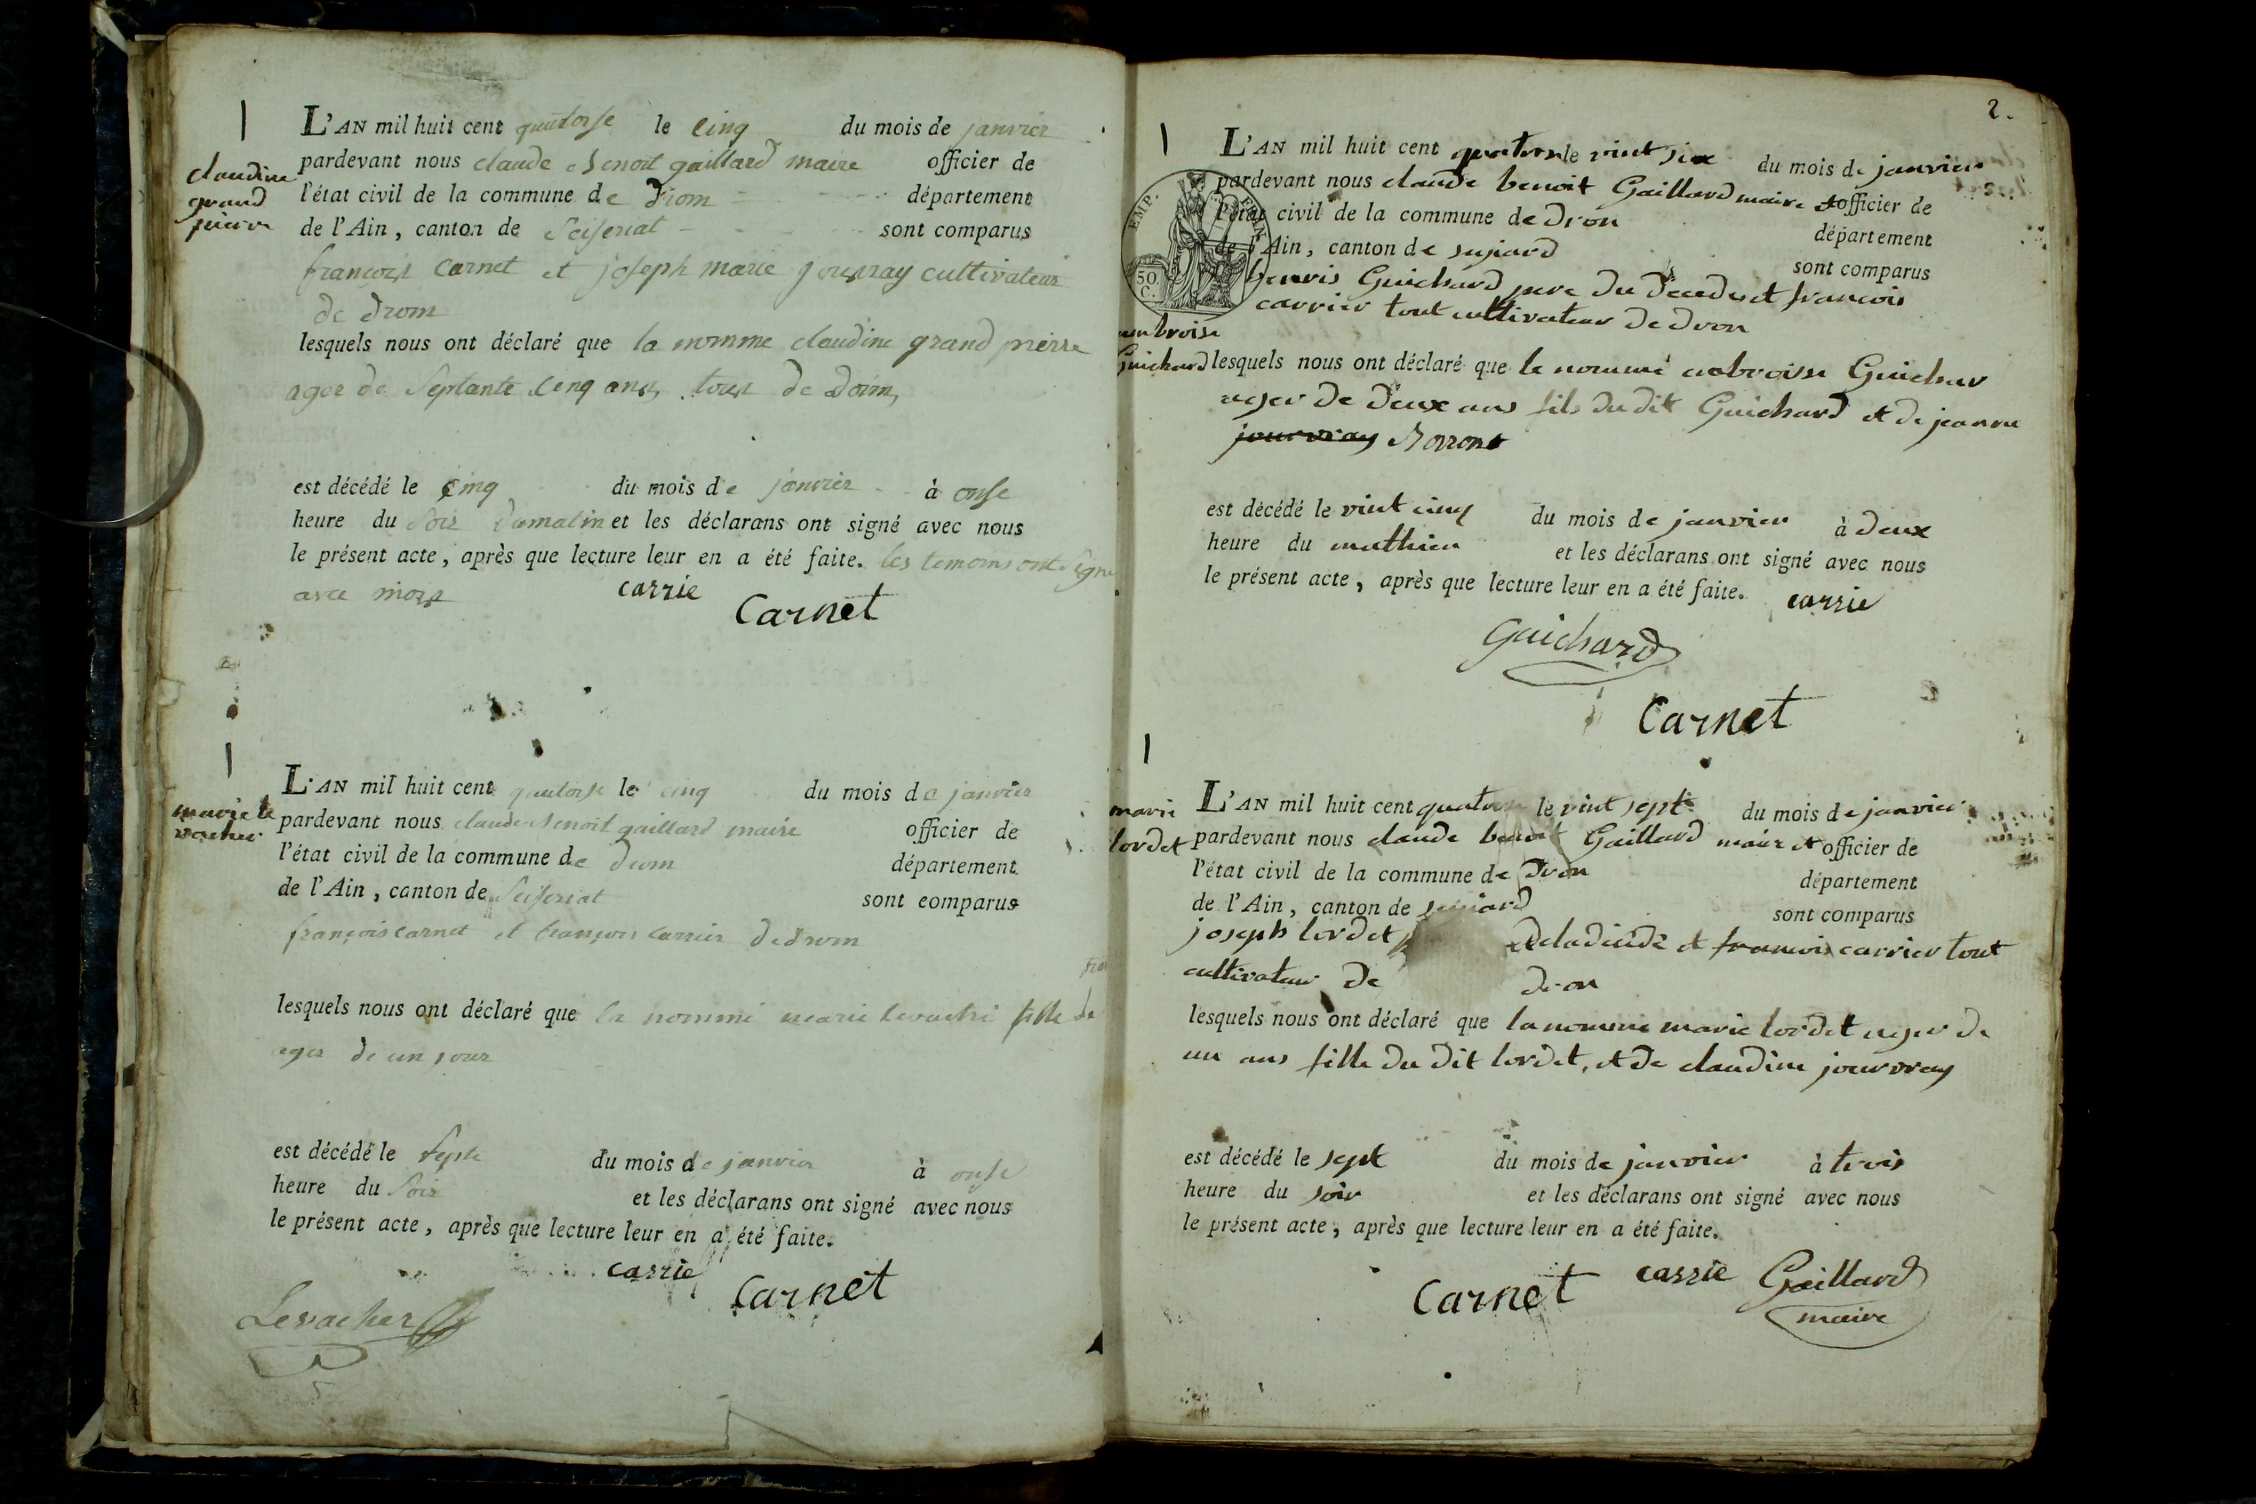 claudine
grand
pierre
L'AN mil huit cent quatorse le cinq du mois de janvier
pardevant nous claude benoit gaillard maire officier de
l'état civil de la commune de Drom département
de l'Ain, canton de Seiseriat sont comparus
francois carnet et joseph marie jouvray cultivateur
de drom
lesquels nous ont déclaré que la nomme claudine grand pierre
ager de septante cinq ans, tous de
est décédé le cinq du mois de janvier à onse
heure du soir damatin et les déclarans ont signé avec nous
le présent acte, après que lecture leur en a été faite. les temoins ont signe
avec
carrie
Carnet
marie le
vacher
L'AN mil huit cent quatorse le cinq du mois de janvier
pardevant nous claude benoit gaillard maire officier de
l'état civil de la commune de drom département
de l'Ain, canton de Seiseriat sont comparus
françois carnet et françois carrier de drom
lesquels nous ont déclaré que la nommé marie levache fille de
ager de un jour
est décédé le septe du mois de janvier à onse
heure du soir et les déclarans ont signé avec nous
le présent acte, après que lecture leur en a été faite.
carrie
Carnet
Levacher
2.
L'AN mil huit cent quatorse le vint six du mois de janvier
pardevant nous claude benoit Gaillard maire et officier de
l'état civil de la commune de dron département
de l'Ain, canton de sujiard sont comparus
EMP. FRAN.
50
C.
henris Guichard pere du decede et francois
carrier tout cultivateur de dron
ambroise
Guichard
lesquels nous ont déclaré que le nommé aobroise Guichar
ager de deux ans fils du dit Guichard et de jeanne
jourvray
est décédé le vint cinq du mois de janvier à deux
heure du mathien et les déclarans ont signé avec nous
le présent acte, après que lecture leur en a été faite.
carrie
Guichard
Carnet
marie
lordet
L'AN mil huit cent quators le vint sept du mois de janvier
pardevant nous claude benoit Gaillard maire et officier de
l'état civil de la commune de Dron département
de l'Ain, canton de sujiard sont comparus
joseph lordet de la décédé et francois carrier tout
cultivateur de dron
lesquels nous ont déclaré que la nommé marie lordet ager de
un ans fille du dit lordet, et de claudine jourvray
est décédé le sept du mois de janvier à trois
heure du soir et les déclarans ont signé avec nous
le présent acte, après que lecture leur en a été faite.
Carnet carrie Gaillard
maire